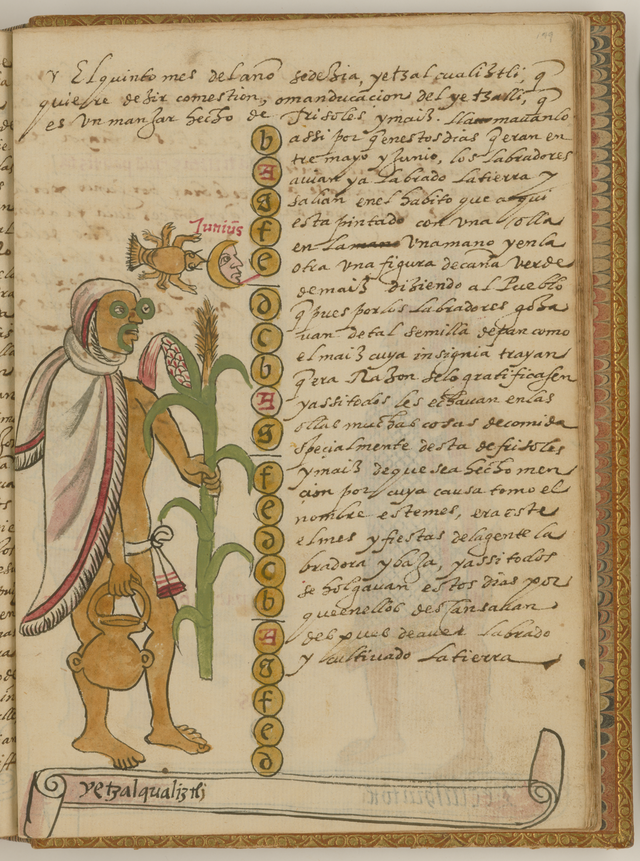 149
Y El quinto mes del año sedezia, yetzalcualiztli, q̃
quiere dezir comestion, o manducacion del yetzalli, q̃
es vn manjar hecho de frisoles y maiz. llamauanlo
assi por q̃ en estos dias q̃ eran en
tre mayo y Junio, los labradores
auian ya labrado la tierra y
salian en el habito que aqui
esta pintado con vna olla
en la mano vna mano y en la
otra vna figura de caña verde
de maiz diziendo al Pueblo
q̃ pues por los labradores goza
uan de tal semilla de pan como
el maiz cuya insignia trayan
q̃ era Razon se lo gratificasen
y assi todos les echauan en las
ollas muchas cosas de comida
specialmente desta de frisoles
y maiz de que sea hecho men
cion por cuya causa tomo el
nombre este mes, era este
el mes y fiestas de la gente la
bradora y baja, y assi todos
se holgauan estos dias por
que en ellos descansaban
despues de auer labrado
y cultivado la tierra
Juniūs
b
A
g
f
e
d
c
b
A
g
f
e
d
c
b
A
g
f
e
d
yetzalqualiztli